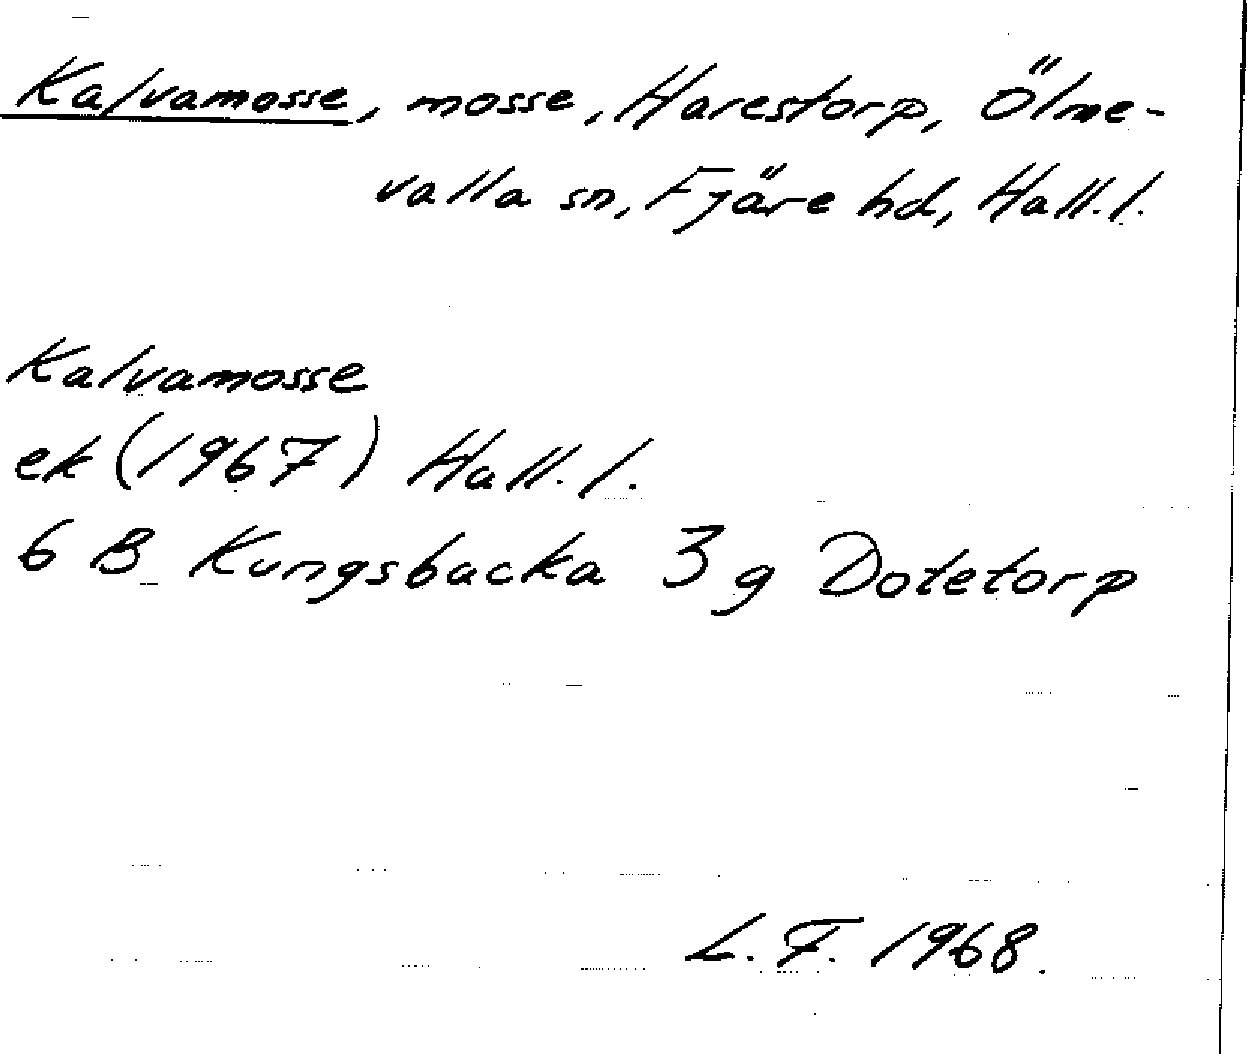 Kalvamosse, mosse, Harestorp, Ölme-
valla sn, Fjäre hd, Hall. l.
Kalvamosse
ek (1967) Hall. l.
6 B Kungsbacka 3 g Dotetorp
L. F. 1968.